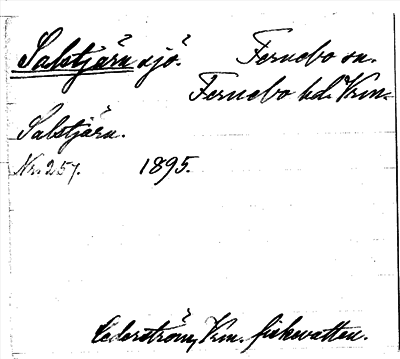 Salstjärn sjö. Fernebo sn.
Fernebo hd. Vrm.
Salstjärn.
Nr. 257. 1895.
Cederström, Vrm. fiskevatten.